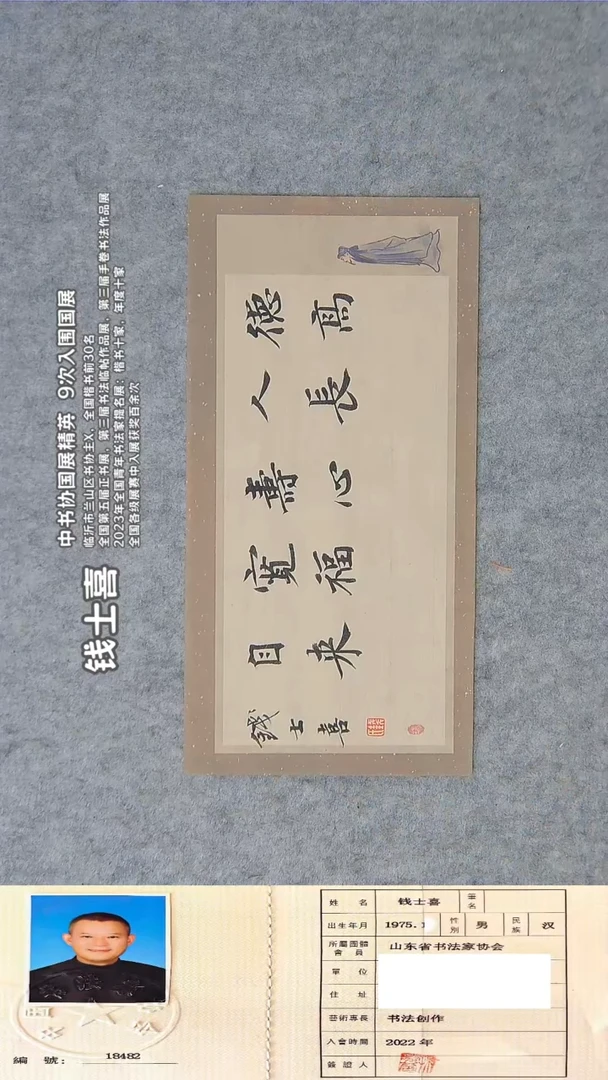 钱士喜
中书协国展精英 9次入围国展
临沂市兰山区书协主X、全国楷书前30名
全国第五届正书展，第三届书法临帖作品展，第三届手卷书法作品展
2023年全国青年书法家提名展：楷书十家，年度十家
全国各级展赛中入展获奖百余次
德高
人長
壽心
寬福
自来
錢士喜
編 號： 18482
姓 名 钱士喜 筆名
出生年月 1975.1 性別 男 民族 汉
所屬團體會員 山东省书法家协会
單 位
住 址
藝術專長 书法创作
入會時間 2022 年
簽證人